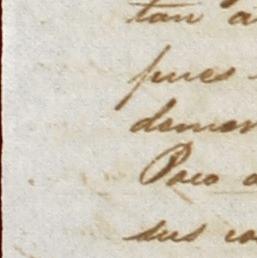 tan a
pues
demen
Poco a
sus co